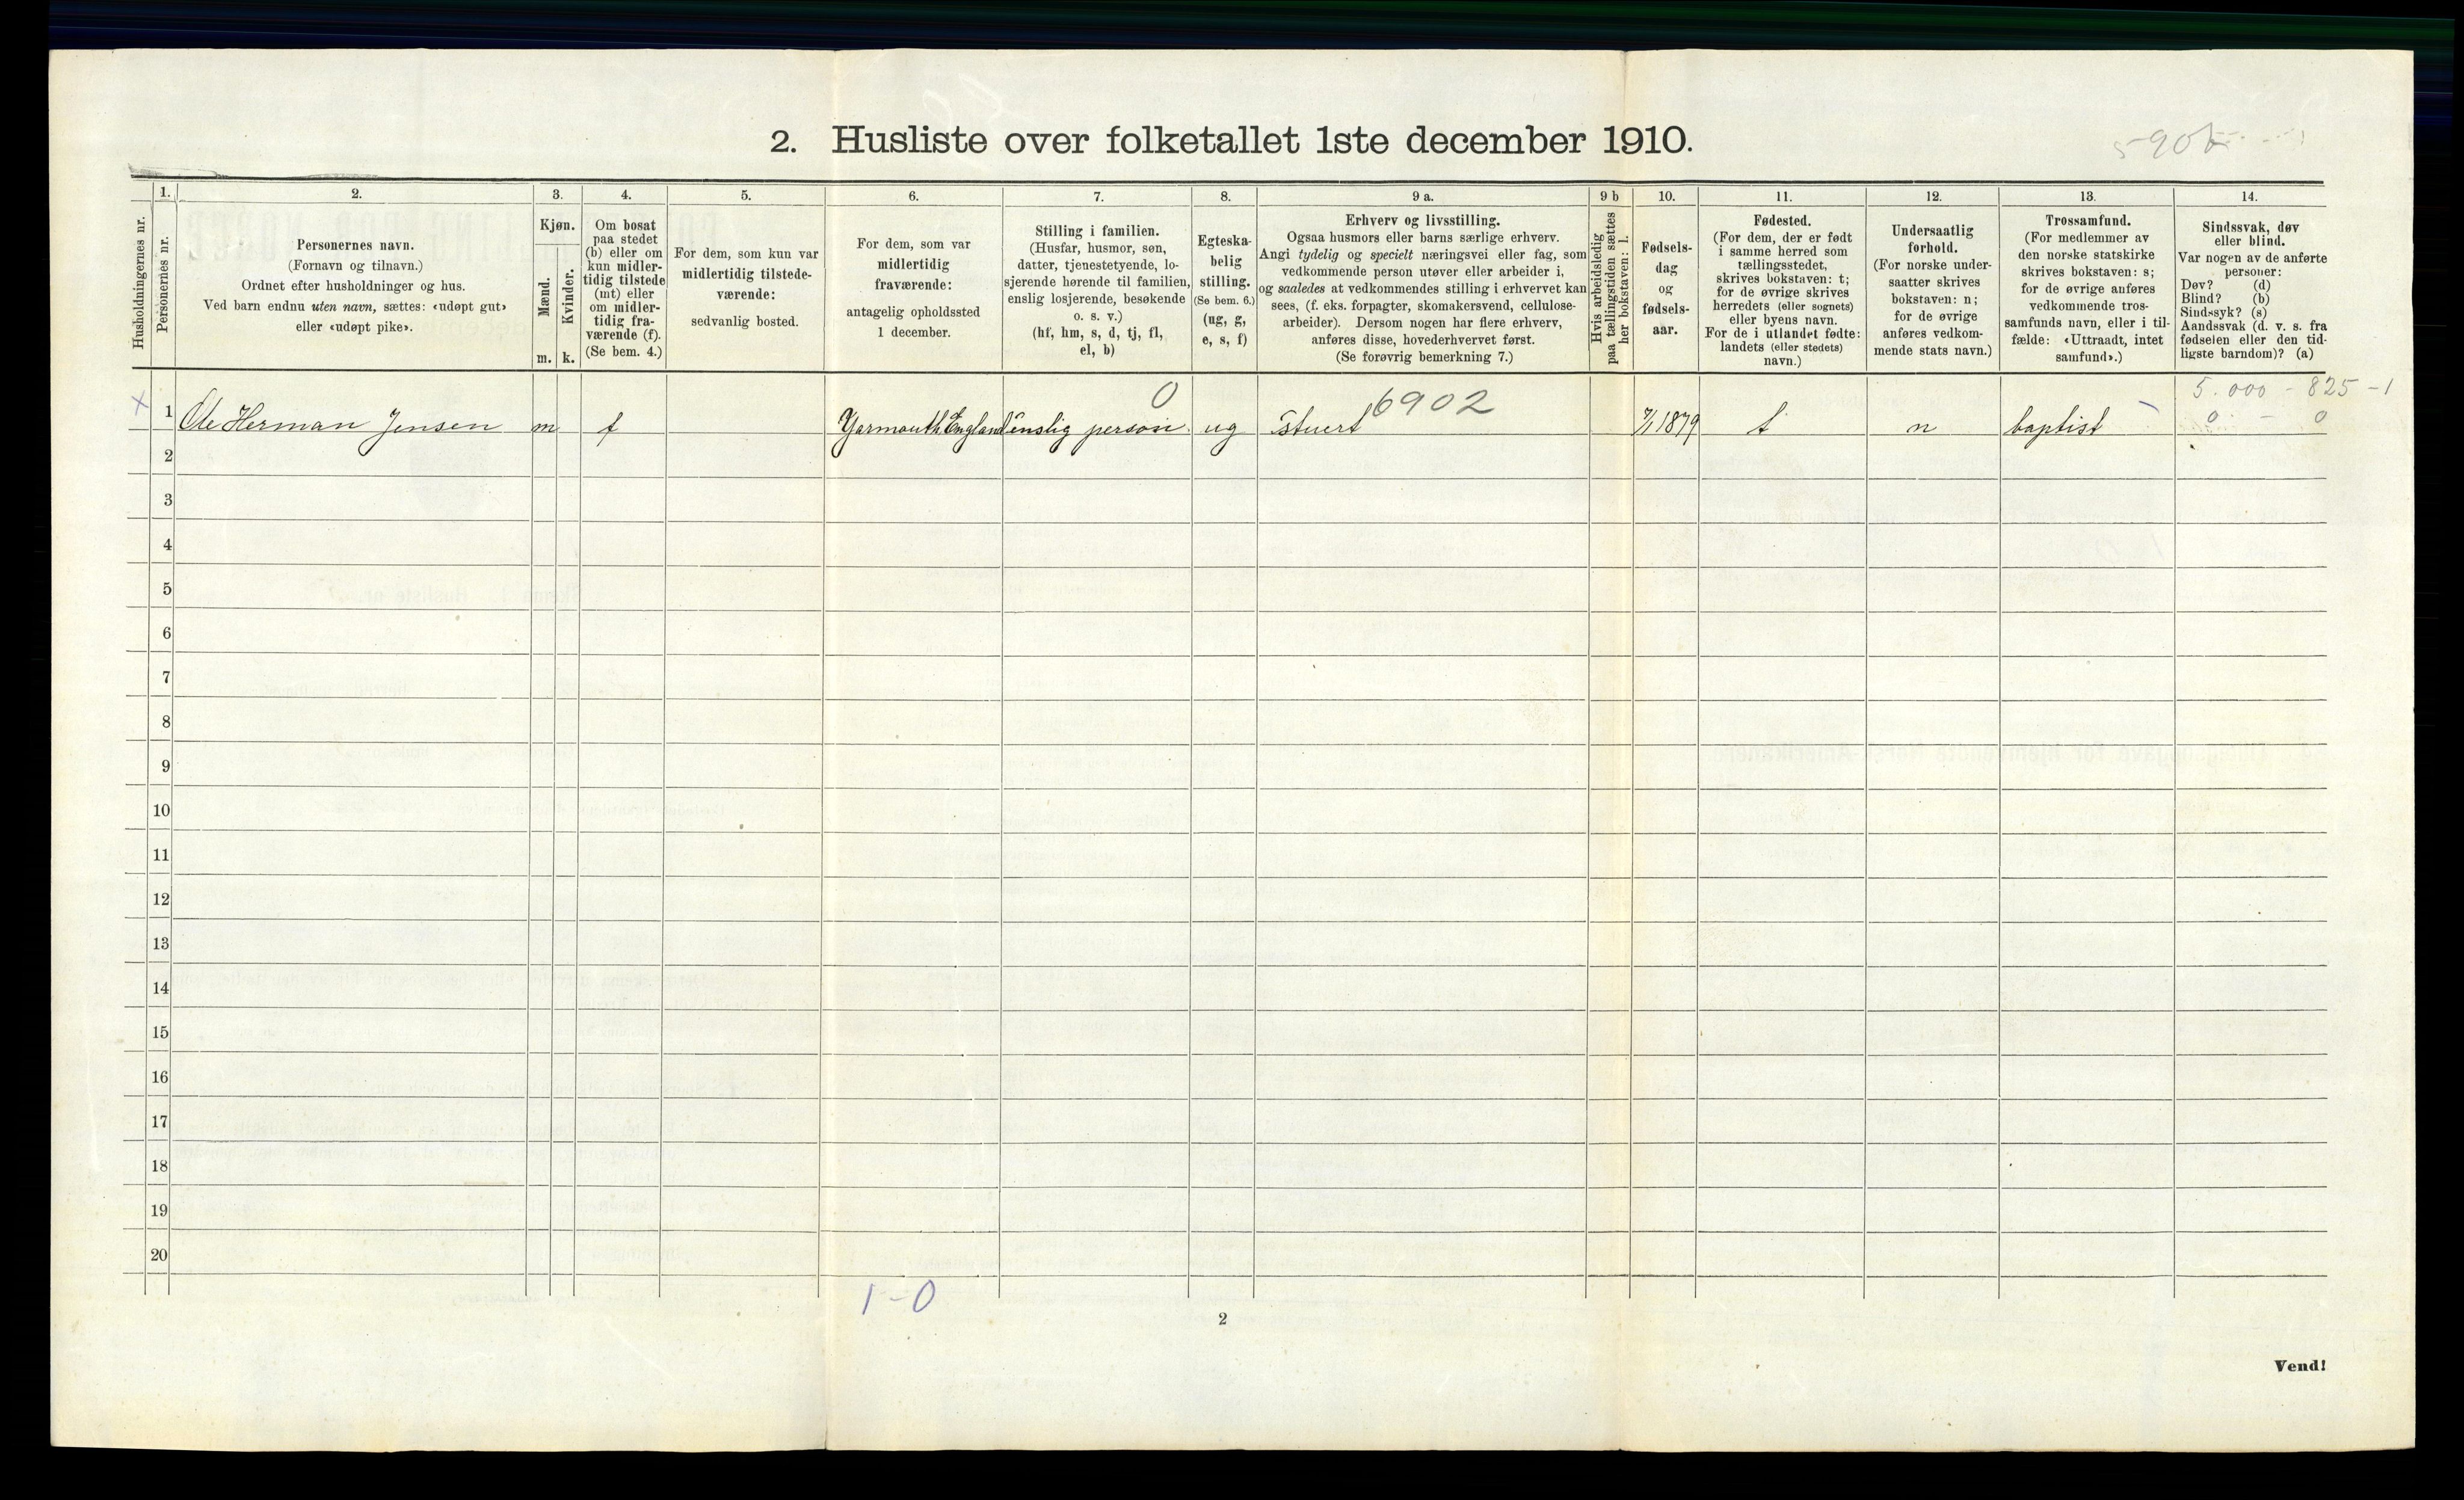 2. Husliste over folketallet 1ste december 1910.
1. 2. 3. 4. 5. 6. 7. 8. 9 a. 9 b 10. 11. 12. 13. 14.
Husholdningernes nr.
Personernes nr.
Personernes navn.
(Fornavn og tilnavn.)
Ordnet efter husholdninger og hus.
Ved barn endnu uten navn, sættes: «udøpt gut»
eller «udøpt pike».
Kjøn.
Mænd.
Kvinder.
m. k.
Om bosat
paa stedet
(b) eller om
kun midler-
tidig tilstede
(mt) eller
om midler-
tidig fra-
værende (f).
(Se bem. 4.)
For dem, som kun var
midlertidig tilstede-
værende:
sedvanlig bosted.
For dem, som var
midlertidig
fraværende:
antagelig opholdssted
1 december.
Stilling i familien.
(Husfar, husmor, søn,
datter, tjenestetyende, lo-
sjerende hørende til familien,
enslig losjerende, besøkende
o. s. v.)
(hf, hm, s, d, tj, fl,
el, b)
Egteska-
belig
stilling.
(Se bem. 6.)
(ug, g,
e, s, f)
Erhverv og livsstilling.
Ogsaa husmors eller barns særlige erhverv.
Angi tydelig og specielt næringsvei eller fag, som
vedkommende person utøver eller arbeider i,
og saaledes at vedkommendes stilling i erhvervet kan
sees, (f. eks. forpagter, skomakersvend, cellulose-
arbeider). Dersom nogen har flere erhverv,
anføres disse, hovederhvervet først.
(Se forøvrig bemerkning 7.)
Hvis arbeidsledig
paa tællingstiden sættes
her bokstaven: l.
Fødsels-
dag
og
fødsels-
aar.
Fødested.
(For dem, der er født
i samme herred som
tællingsstedet,
skrives bokstaven: t;
for de øvrige skrives
herredets (eller sognets)
eller byens navn.
For de i utlandet fødte:
landets (eller stedets)
navn.)
Undersaatlig
forhold.
(For norske under-
saatter skrives
bokstaven: n;
for de øvrige
anføres vedkom-
mende stats navn.)
Trossamfund.
(For medlemmer av
den norske statskirke
skrives bokstaven: s;
for de øvrige anføres
vedkommende tros-
samfunds navn, eller i til-
fælde: «Uttraadt, intet
samfund».)
Sindssvak, døv
eller blind.
Var nogen av de anførte
personer:
Døv? (d)
Blind? (b)
Sindssyk? (s)
Aandssvak (d. v. s. fra
fødselen eller den tid-
ligste barndom)? (a)
0 6902 5.000 - 825 - 1
x 1 Ole Herman Jensen m f Yarmouth England enslig person ug Stuert 7/1 1879 t n baptist 0 - 0
2
3
4
5
6
7
8
9
10
11
12
13
14
15
16
17
18
19
20
1-0
2
Vend!